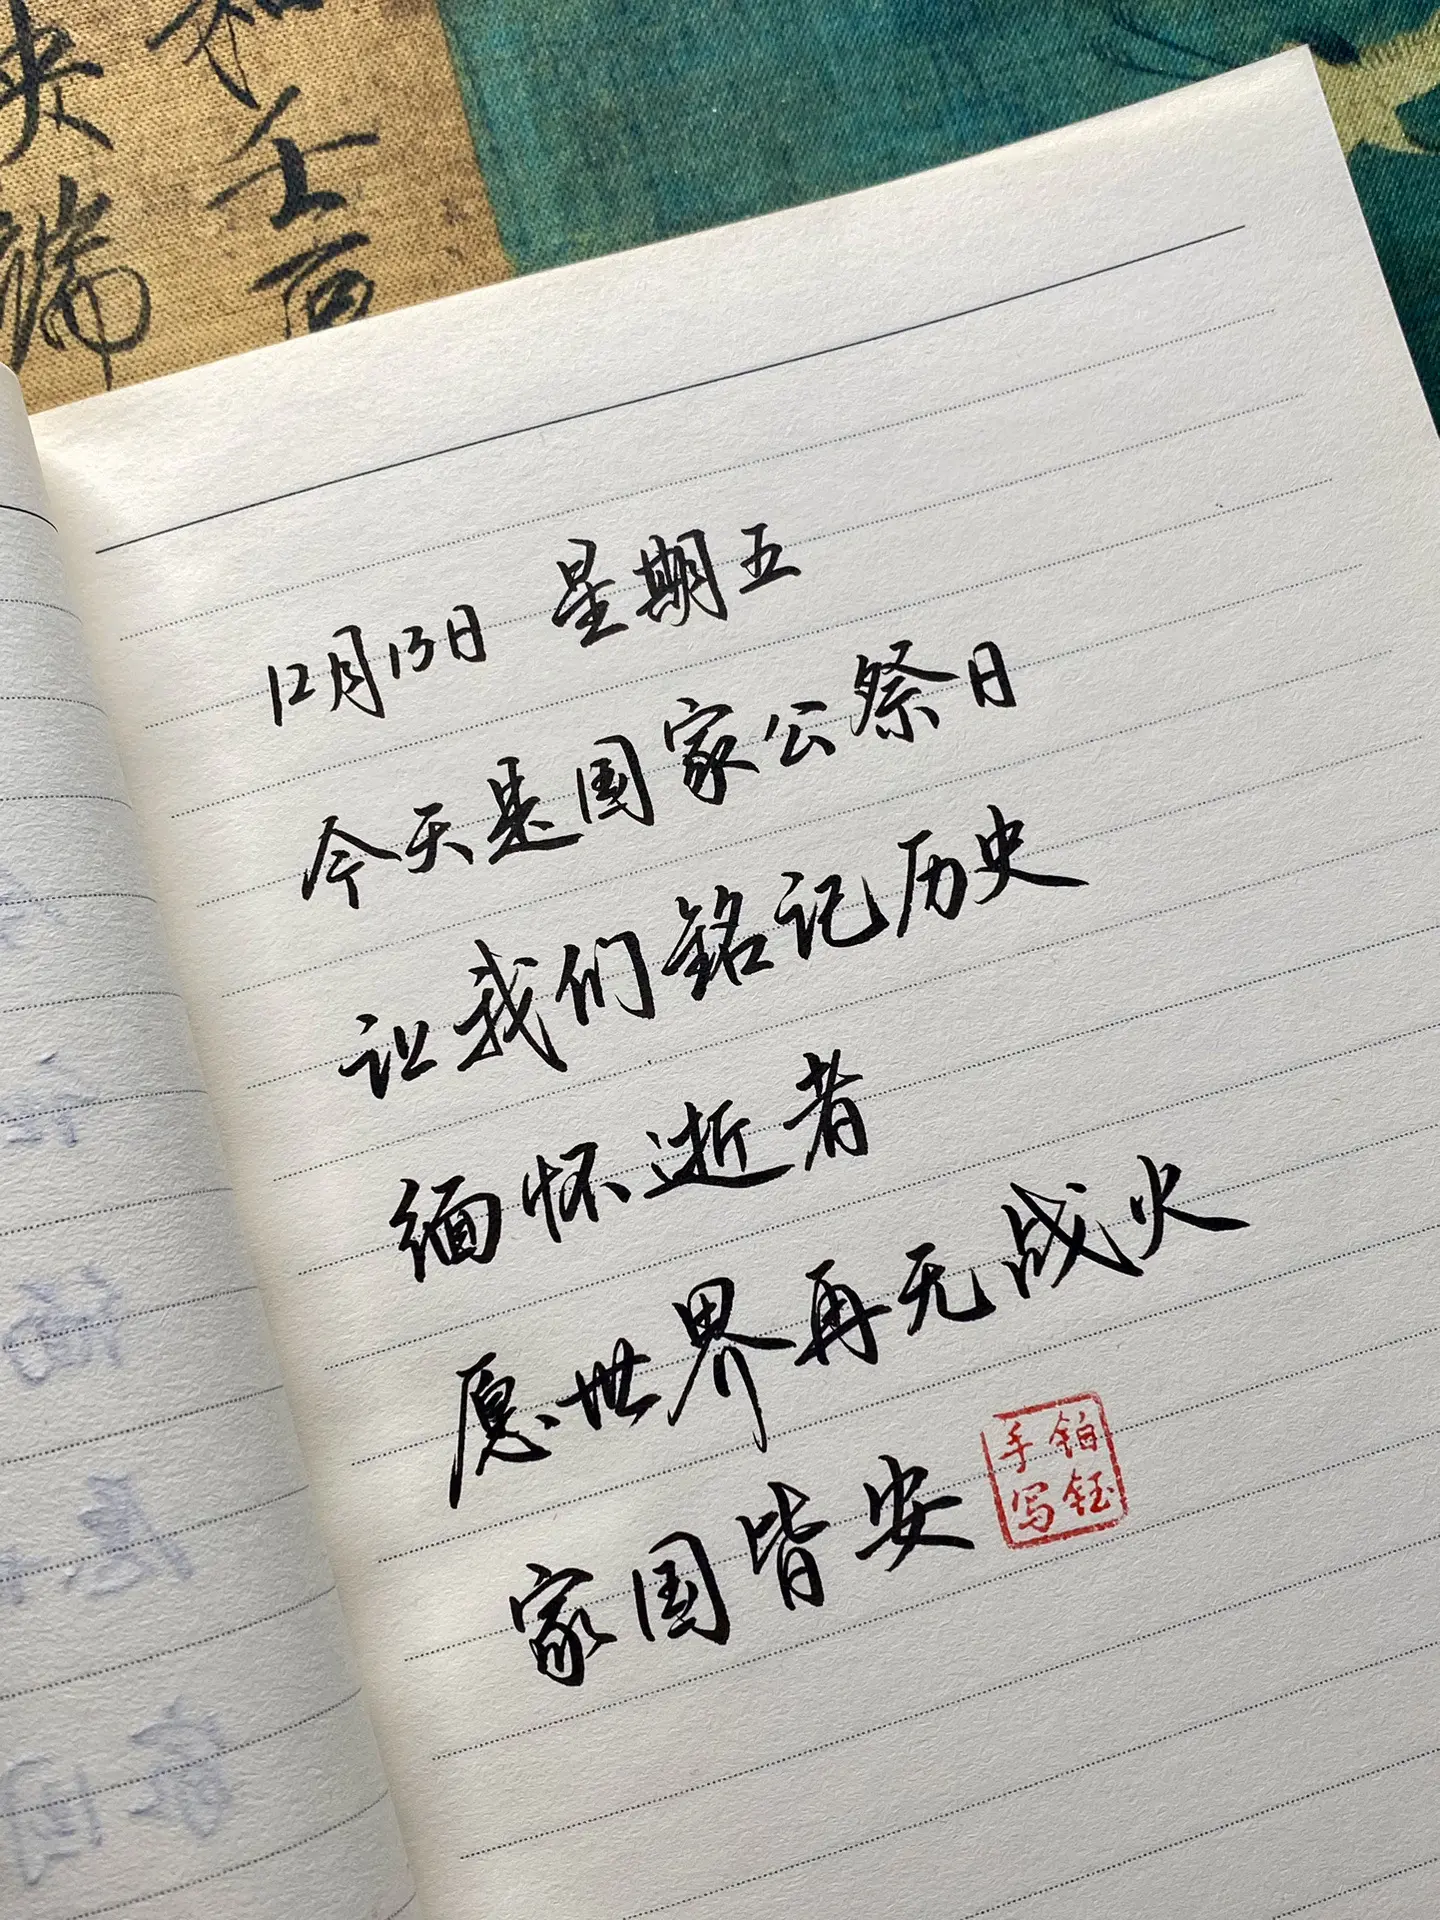 12月13日 星期五
今天是国家公祭日
让我们铭记历史
缅怀逝者
愿世界再无战火
家国皆安
铂钰
手写